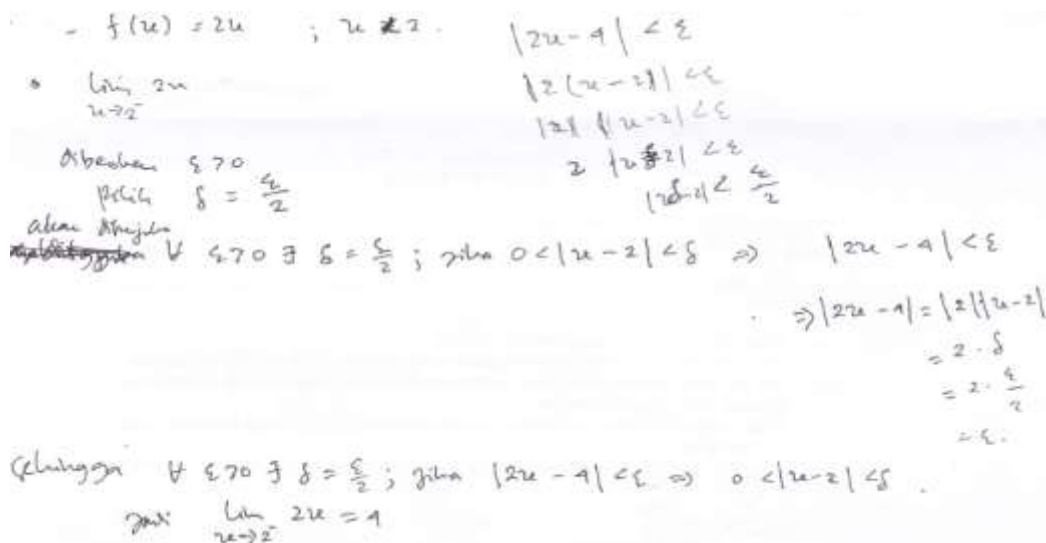 - f(x) = 2x ; x < 2.
• lim 2x
x→2⁻
|2x - 4| < ε
|2(x - 2)| < ε
|2| |x - 2| < ε
2 |x - 2| < ε
|x - 2| < ε/2
diberikan ε > 0
pilih δ = ε/2
akan ditunjukan
∀ ε > 0 ∃ δ = ε/2 ; jika 0 < |x - 2| < δ ⇒ |2x - 4| < ε
⇒ |2x - 4| = |2||x - 2|
= 2 . δ
= 2 . ε/2
= ε.
Sehingga ∀ ε > 0 ∃ δ = ε/2 ; jika |2x - 4| < ε ⇒ 0 < |x - 2| < δ .
Jadi lim 2x = 4
x→2⁻